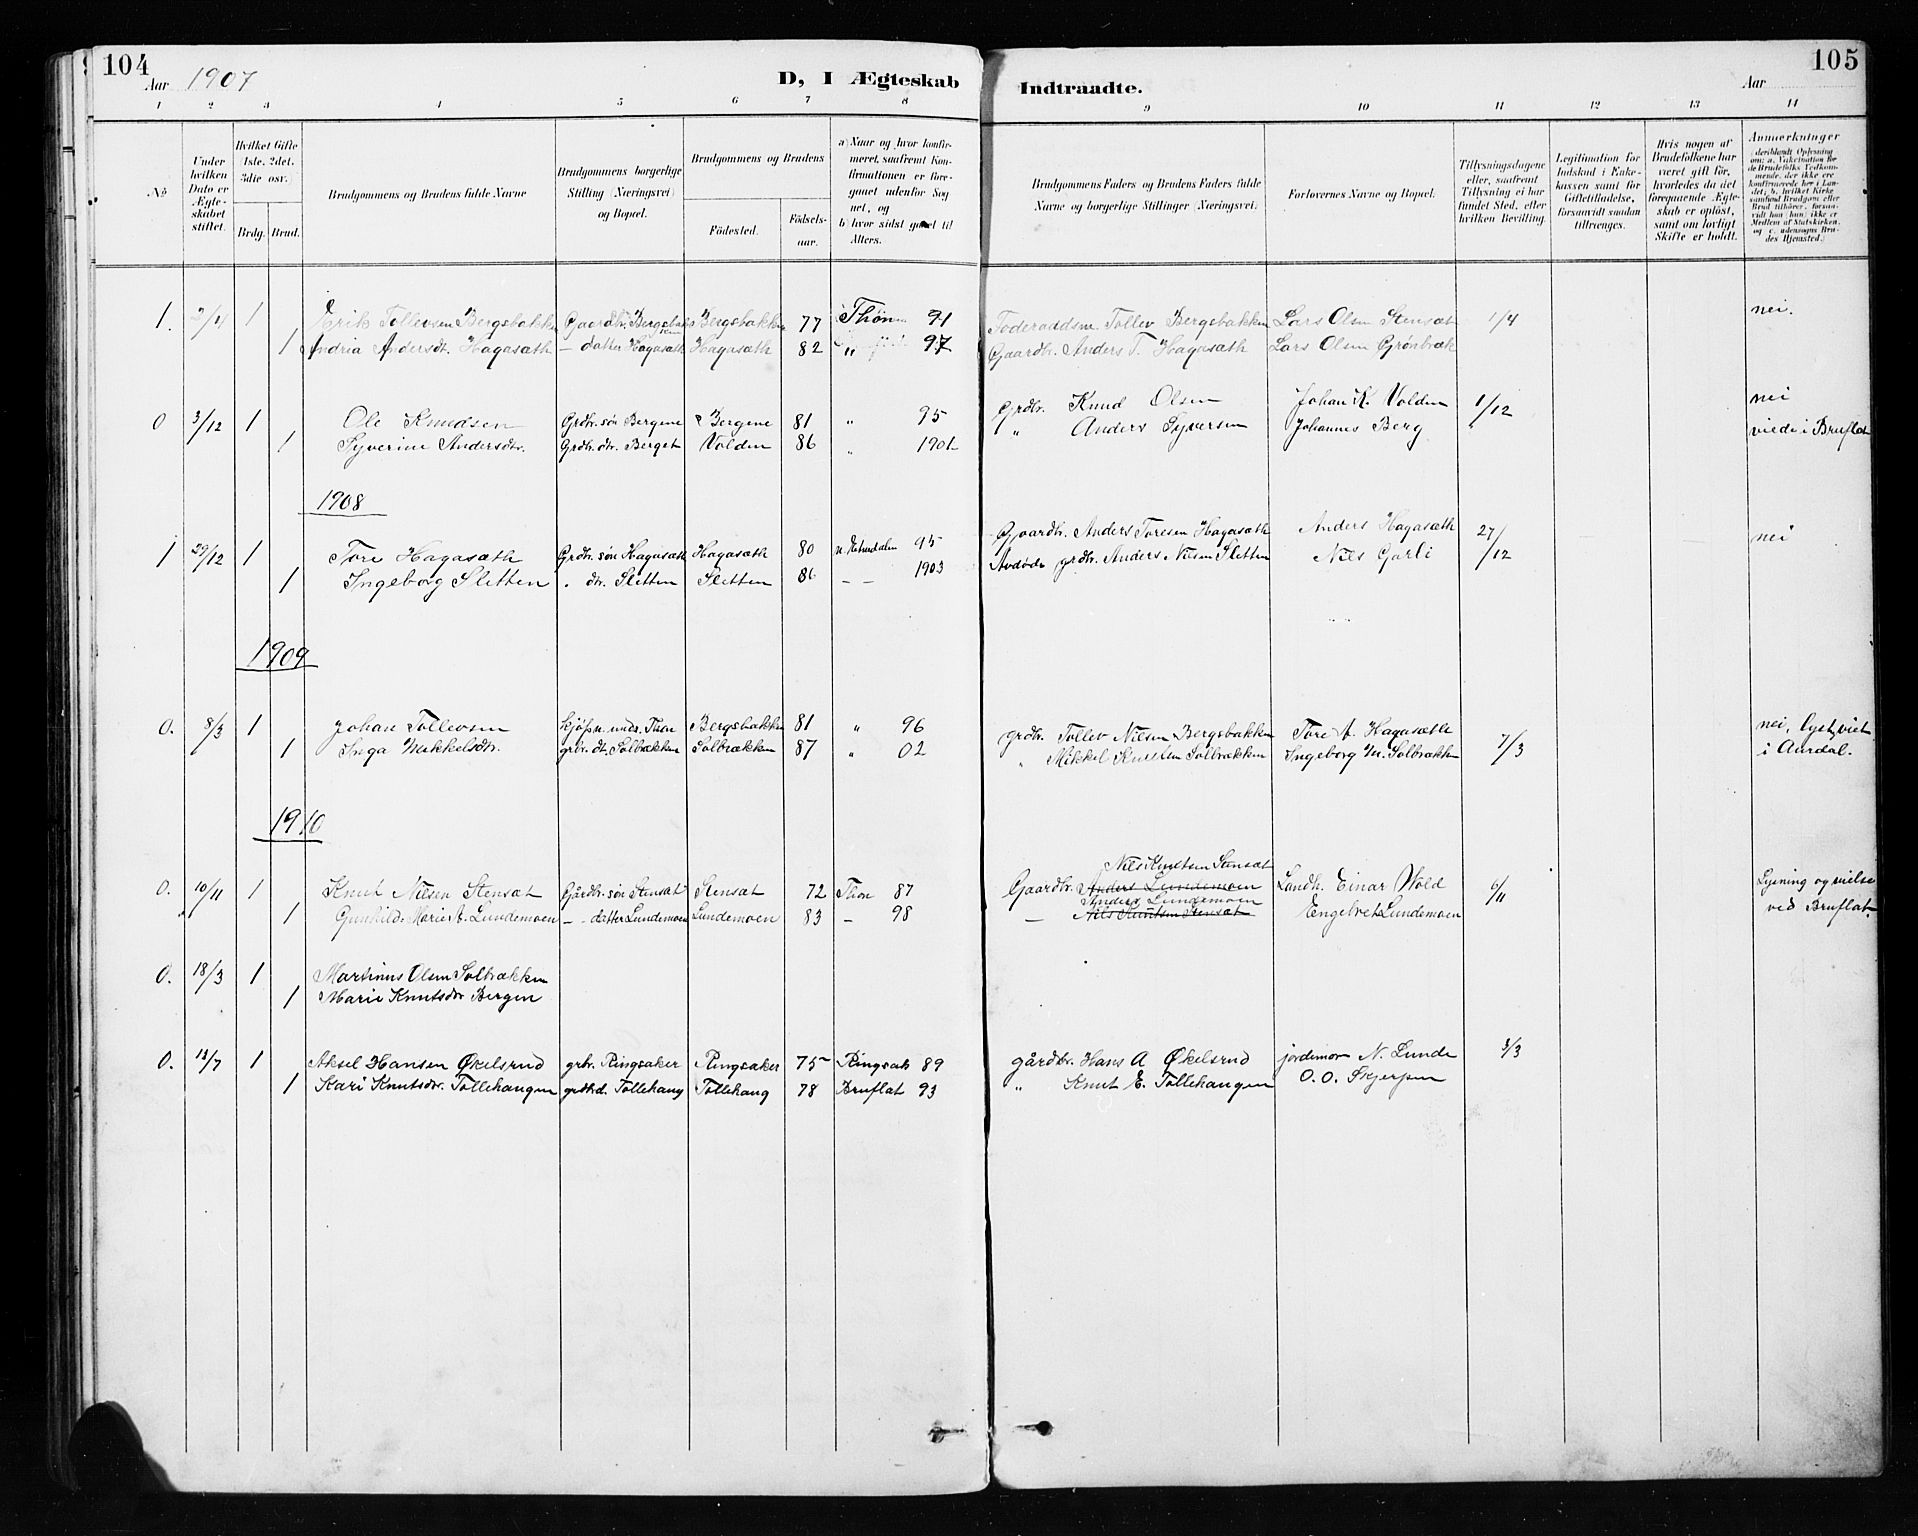 104
Aar 1907
D, I Ægteskab
Indtraadte.
Aar
105
1 2 3 4 5 6 7 8 9 10 11 12 13 14
No
Under hvilken Dato er Ægteskabet stiftet.
Hvilket Gifte 1ste, 2det, 3die osv.)
Brdg. Brud.
Brudgommens og Brudens fulde Navne
Brudgommens borgerlige Stilling (Næringsvei) og Bopæl.
Brudgommens og Brudens
Fødested.
Fødselsaar.
a) Naar og hvor konfirmeret, saafremt Konfirmationen er foregaaet udenfor Sognet, og
b) hvor sidst gaaet til Alters.
Brudgommens Faders og Brudens Faders fulde Navne og borgerlige Stillinger (Næringsvei)
Forlovernes Navne og Bopæl.
Tillysningsdagene eller, saafremt Tillysning ei har fundet Sted, efter hvilken Bevilling.
Legitimation for Indskud i Enkekassen samt for Giftetilladelse, forsaavidt saadan tiltrænges.
Hvis nogen af Brudefolkene har været gift før, hvorledes da det foregaaende Ægteskab er opløst, samt om lovligt Skifte er holdt.
Anmærkninger
(deriblandt Oplysning om: a. Vakcination for de Brudefolks Vedkommende, der ikke ere konfirmerede her i Landet; b. hvilket Kirkesamfund Brudgom eller Brud tilhører, forsaavidt han (hun) ikke er Medlem af Statskirken, og c. udensogns Brudes Hjemsted.)
1. 2/4 1 Erik Tollevsen Bergsbakken Gaardbr. Bergsbakken Bergsbakken 77 Thon 91 Føderaadsm Tollev Bergsbakken Lars Olsen Stensæt 1/4 nei.
1 Andria Andersdt. Hagasæth – datter Hagasæth Hagasæth 82 " 97 Gaardbr. Anders T. Hagasæth Lars Olsen Grønbræk
0 3/12 1 Ole Knudsen Grdbr. søn Bergene Bergene 81 " 95 Grdbr. Knud Olsen Johan K. Volden 1/12 nei
1 Syverine Andersdtr. Grdbr. dtr. Berget Volden 86 " 1901 " Anders Syversen Johannes Berg " viede i Bruflat
1908
1 29/12 1 Tore Hagasæth Grdbr. søn Hagasæth Hagasæth 80 n. Etnedalen 95 Gaardbr. Anders Toresen Hagasæth Anders Hagasæth 27/12 nei
1 Ingeborg Sletten " dtr. Sletten Sletten 86 – – 1903 Avdøde grdbr. Anders Nilsen Sletten Nils Garli
1909
0. 8/3 1 Johan Tollevsen kjøpm. unds. Thon Bergsbakken 81 " 96 grdbr. Tollev Nilsen Bergsbakken Tore A. Hagasæth 7/3 nei, lyst, viet
1 Inga Mikkelsdtr. grbr. dt. Solbrækken Solbrækken 87 " 02 " Mikkel Knutsen Solbrækken Ingeborg M. Solbrækken i Aurdal.
1910
Nils Knutsen Stensæt
0. 10/11 1 Knut Nilsen Stensæt Gårdbr. søn Stensæt Stensæt 72 Thon 87 Gaardbr. Anders Lundemoen Landh. Einar Wold 6/11 Lysning og vielse
Anders Lundemoen
1 Gunhild Marie A. Lundemoen – – datter Lundemoen Lundemoen 83 – 98 – Nils Knutsen Stensæt Engebret Lundemoen ved Bruflat.
0. 18/3 1 Martinus Olsen Solbrækken
1 Marie Knutsdtr Bergen
0. 13/7 1 Aksel Hansen Økelsrud grbr. Ringsaker Ringsaker 75 Ringsak 89 gårdbr. Hans A Økelsrud jordemor N. Lunde 3/3
1 Kari Knutsdtr. Tollehaugen grdbrd. Tollehaug Tollehaug 78 Bruflat 93 " Knut E. Tollehaugen O. O. Skjerpen